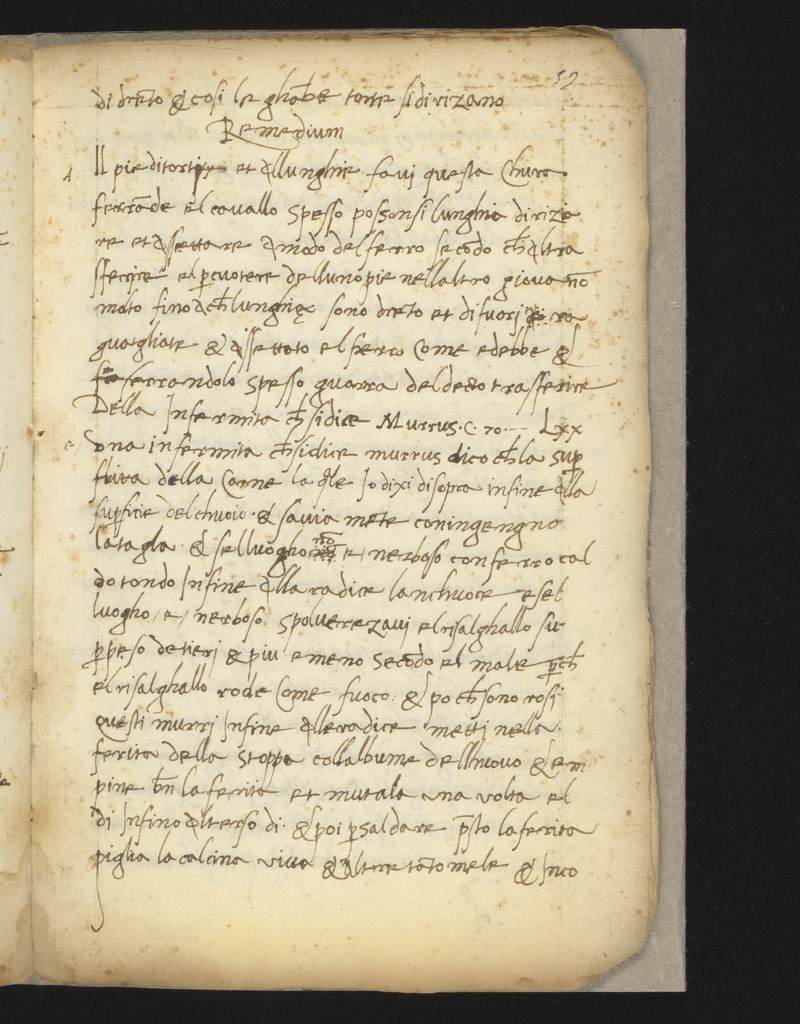 59
di dreto & cosi le ghābe torte si dirizano
Remedium
Il pie ditorti et allunghie favi questa Chura
ferrāde el cavallo spesso possonsi lunghia diriza
re et assettare amodo del ferro secōdo ch̄ altra
sferire el ꝑcuotere dellunopie nellaltro giova nō
molto fino ach̄ lunghie sono dreto et di fuori ra
guagliate & assettato el ferro Come edebbe &
ferrandolo spesso guarra del detto trasferire
Della Infermita ch̄ sidice Murrus. C. 70. -- Lxx
Una infermita ch̄ sidice murrus dico ch̄ la suꝑ
fluva della Carne la q̄le Jo dixi disopra infine alla
suꝑficie del chuoio & savia mēte con ingengno
la tagla & sel luogho nō e nerboso con ferro cal
do tondo Infine alla radice lanchuoce e sel
luogho / e / nerboso spolverezavi el risalghallo su
ꝑ peso de tieri & piu e meno Secōdo el male ꝑch̄
el risalghallo rode Come fuoco: & po ch̄ sono rosi
questi murri Infine alle radice metti nella
ferita della stoppa collalbume dellhuovo & em
pine bn̄ la ferita et mutala una volta el
di Infino al terso di & poi ꝑ saldare p̄sto la ferita
piglia la calcina viva & altre tāto mele & Inco